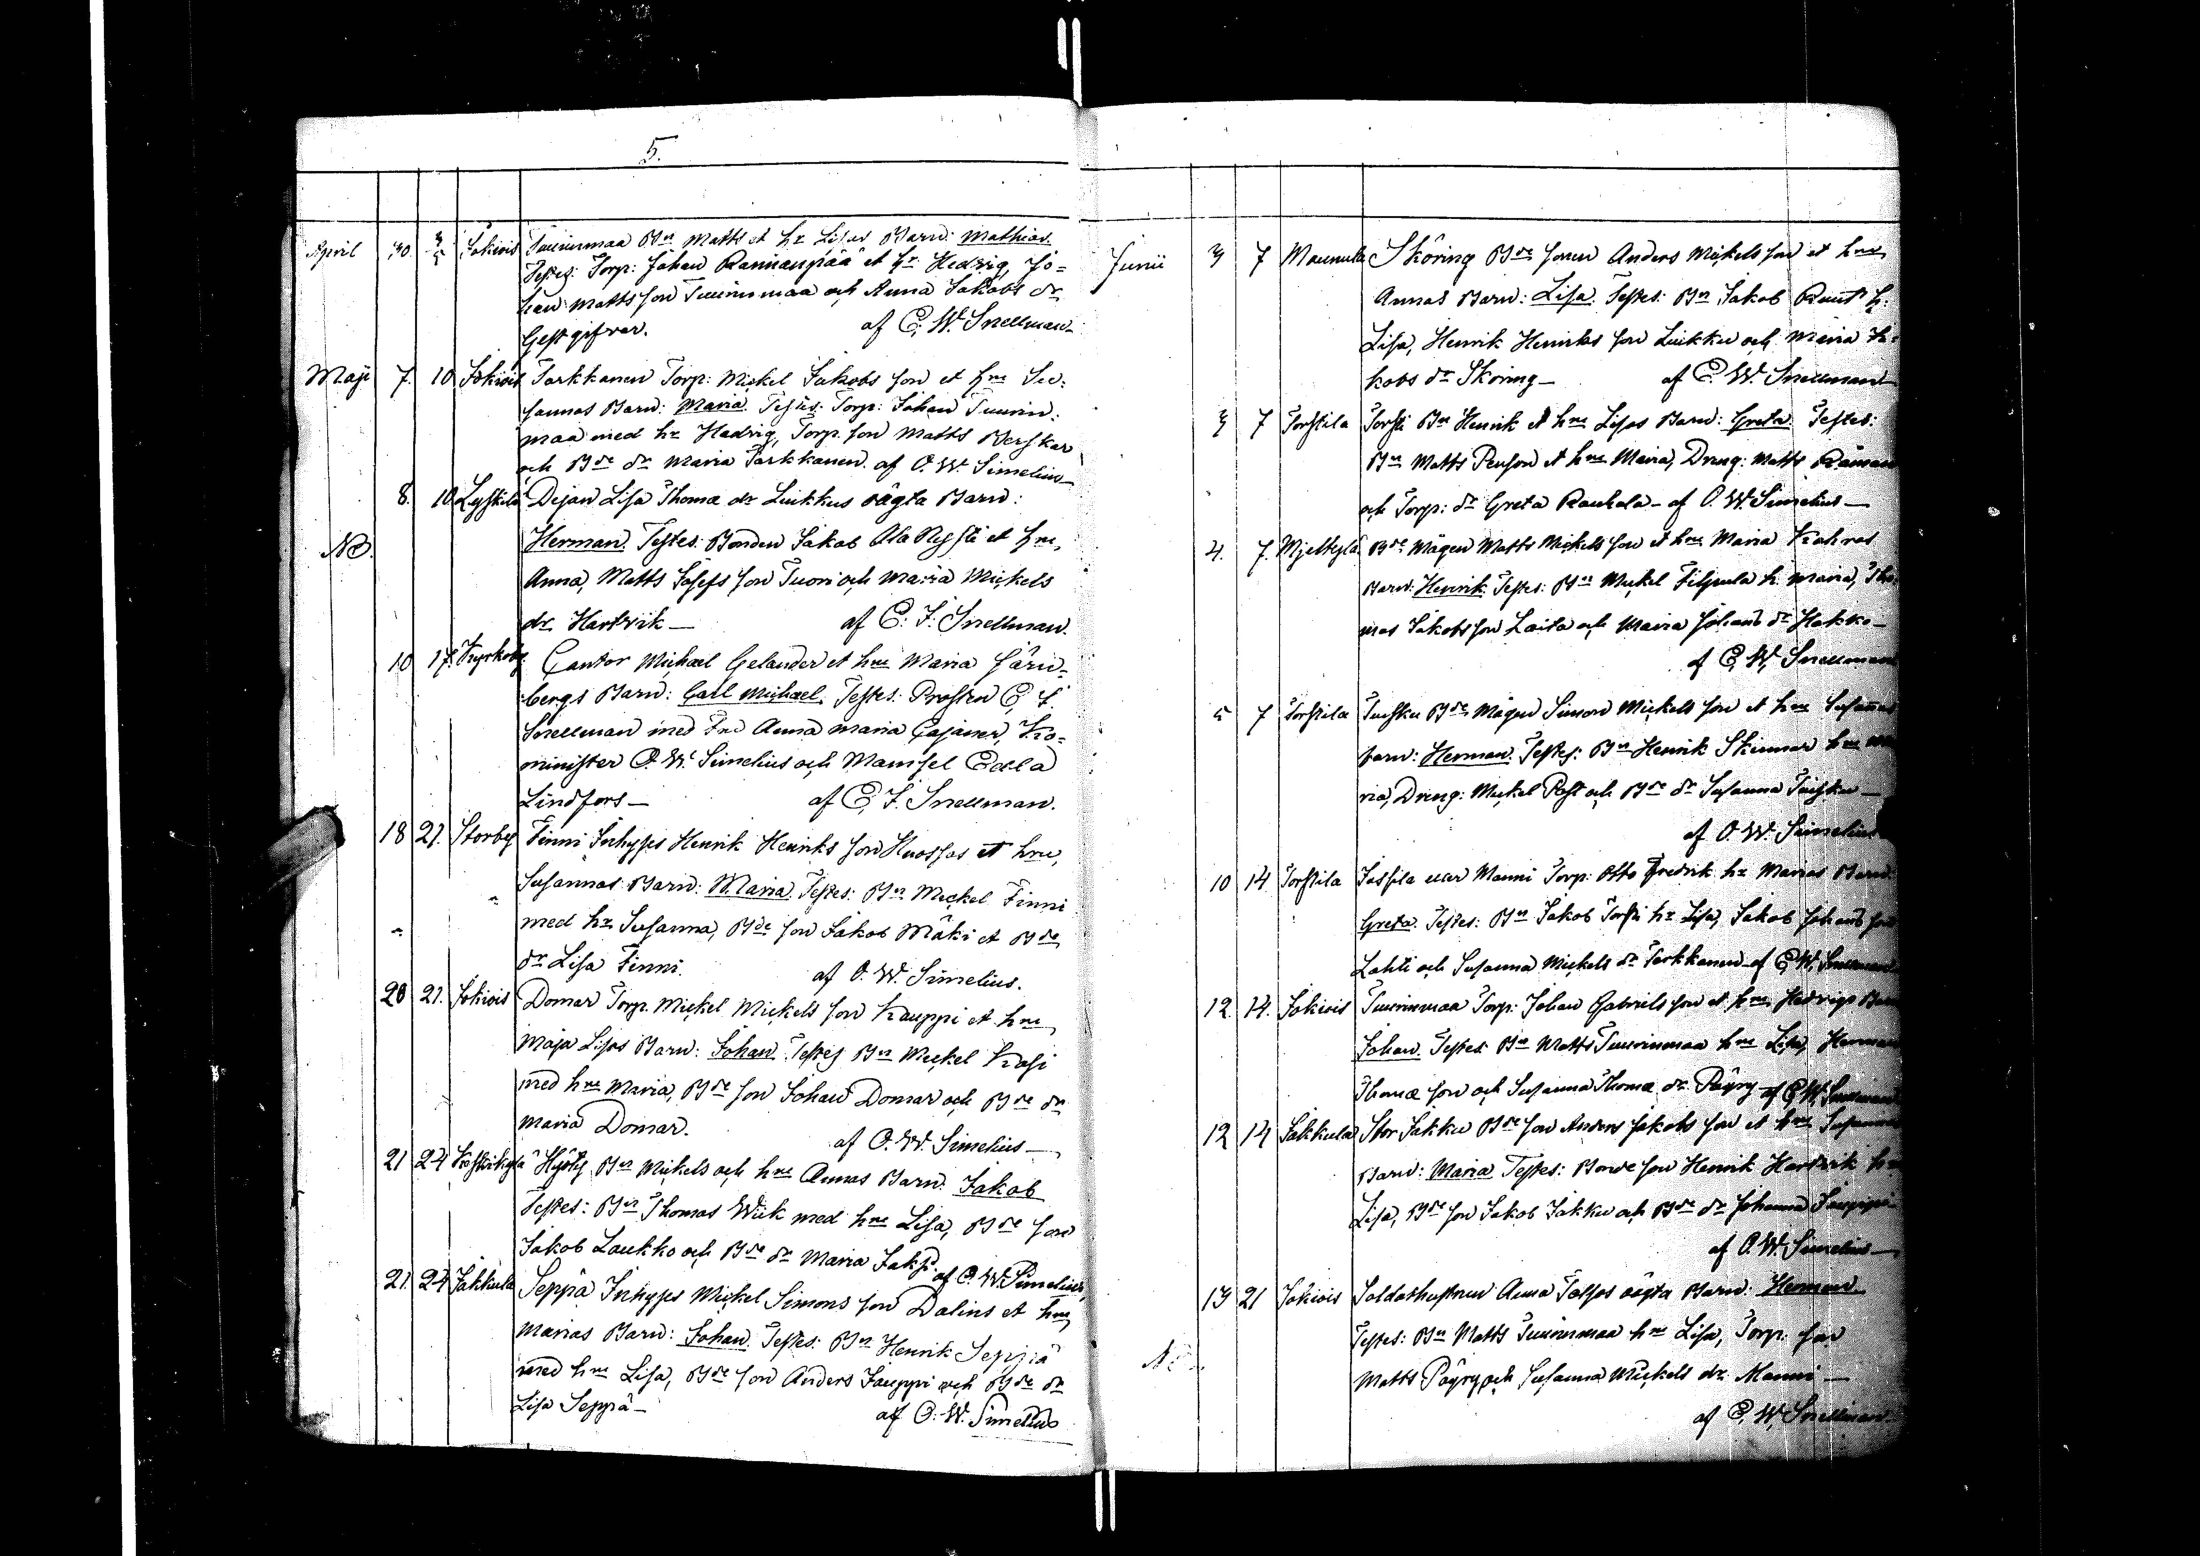 5.
April 30. 3/5 Jokiois Tuurinmaa Bn Matts et hr Lisas Barn: Mathias.
Testes: Torp: Johan Rannanpää et hr Hedvig, Jo=
han Matts son Tuurinmaa och Anna Jakobs dr
Gestgifvar. af C. W. Snellman
Maji 7. 10 Jokiois Tarkkanen Torp: Mickel Jakobs son et hru Su:
sannas Barn: Maria. Testes: Torp: Johan Tuurin:
maa med hr Hedvig, Torp. son Matts
och Bde dr Maria Tarkkanen. af O. W. Simelius
8. 10 Lyskilä Lisa Thomæ dr Luikkus oägta Barn:
NB. Herman. Testes: Bonden Jakob Ala Rysti et hru,
Anna, Matts Josefs son Tuori och Maria Mickels
dr Hartvik — af C. F. Snellman.
10 17. Kyrkoby Cantor Michael Gelander et hru Maria Färn=
bergs Barn: Carl Michael. Testes: Prosten C. F.
Snellman med Fru Anna Maria Cajaner, Ko=
minister O. W. Simelius och Mamsel Edla
Lindfors — af C. F. Snellman.
18 21. Storby Finni Inhyses Henrik Henriks son Huossas et hru,
Susannas Barn: Maria. Testes: Bn Mickel Finni
med hr Susanna, Bde son Jakob Mäki et Bde
dr Lisa Finni. af O. W. Simelius.
20 21. Jokiois Domar Torp. Mickel Mickels son Kauppi et hru
Maja Lisas Barn: Johan. Testes Bn Mickel Krasi
med hru Maria, Bde son Johan Domar och Bde dr
Maria Domar. af O. W. Simelius —
21 24 Hyöty Bn Mickels och hru Annas Barn: Jakob
Testes: Bn Thomas Wiik med hru Lisa, Bde son
Jakob Laukko och Bde dr Maria af O. W. Simelius,
21. 24 Jakkula Seppä Inhyses Mickel Simons son Dalins et hru,
Marias Barn: Johan. Testes: Bn Henrik Seppä
med hru Lisa, Bde son Anders Jauppi och Bde dr
Lisa Seppä — af O. W. Simelius
Junii 3 7 Maunula Sköring Bde sonen Anders Mickels son et hru
Annas Barn: Lisa. Testes: Bn Jakob h:
Lisa, Henrik Henriks son Luikku och Maria Ja=
kobs dr Sköring — af C. W. Snellman
3 7 Torstila Torsti Bn Henrik et hru Lisas Barn: Greta. Testes:
Bn Matts et hru Maria, Dreng: Matts
och Torp: dr Greta Raukola — af O. W. Simelius —
4. 7. Mjeltkylä Bde Mågen Matts Mickels son et hru Maria
Barn: Henrik. Testes: Bn Mickel Filpula h. Maria, Tho
mas Jakobs son Laita och Maria Johans dr Hakko —
af C. W. Snellman
5 7 Torstila Tuisku Bde Mågen Simon Mickels son et hru Susannas
barn: Herman. Testes: Bn Henrik Skinnar hru Ma
ria, Dreng: Mickel Post och Bde dr Susanna Tuisku —
af O. W. Simelius
10 14 Torstila Jassila eller Manni Torp: Otto Fredrik hr Marias Barn
Greta. Testes: Bn Jakob Torsti hr Lisa, Jakob Johans son
Lahti och Susanna Mickels dr Tarkkanen af C. W. Snellman
12. 14. Jokiois Tuurinmaa Torp: Johan Gabriels son et hru Hedvigs Barn
Johan. Testes: Bn Matts Tuurinmaa hru Lisa, Herman
Thomæ son och Susanna Thomæ dr Päyry af C. W. Snellman
12 14 Jakkula Stor Jakku Bde son Anders Jakobs son et hru Susannas
Barn: Maria. Testes: Bonde son Henrik Hartvik hru
Lisa, Bde son Jakob Jakku och Bde dr Johanna
af O. W. Simelius —
13 21 Jokiois Soldathustrun Anna oägta Barn: Herman.
Testes: Bn Matts Tuurinmaa hru Lisa, Torp: son
Matts Päyry och Susanna Mickels dr Manni —
af C. W. Snellman.